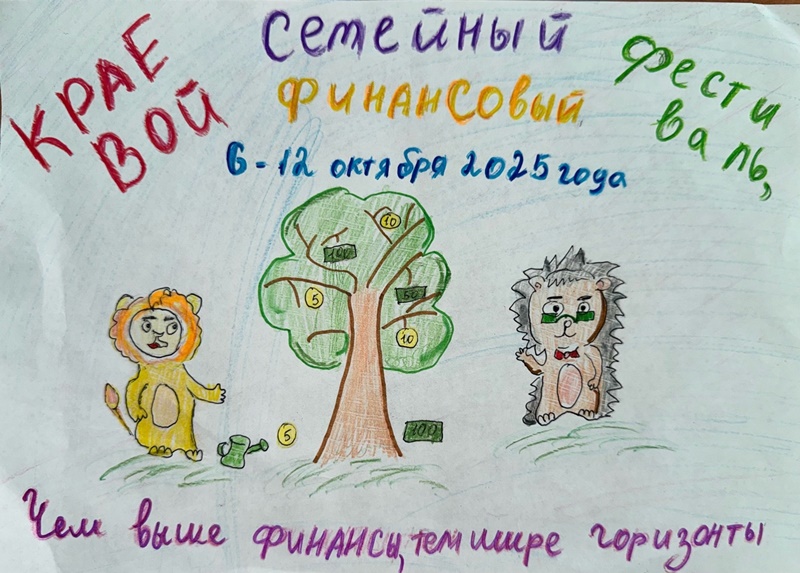 КРАЕ
ВОЙ
СемейНЫЙ
ФИНАНСОВЫЙ
Фести
валь,
6-12 октября 2025 года
10
100
5
50
10
5
100
Чем выше ФИНАНСЫ, тем шире горизонты